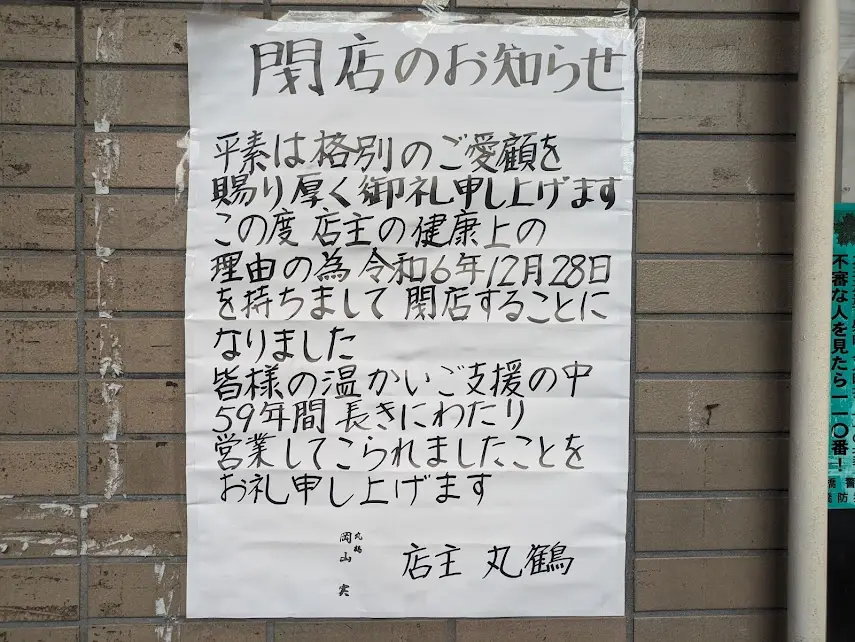 閉店のお知らせ
平素は格別のご愛顧を
賜り厚く御礼申し上げます
この度 店主の健康上の
理由の為 令和6年12月28日
を持ちまして 閉店することに
なりました
皆様の温かいご支援の中
59年間 長きにわたり
営業してこられましたことを
お礼申し上げます
店主 丸鶴
丸鶴
岡山 実
不審な人を見たら一一〇番!